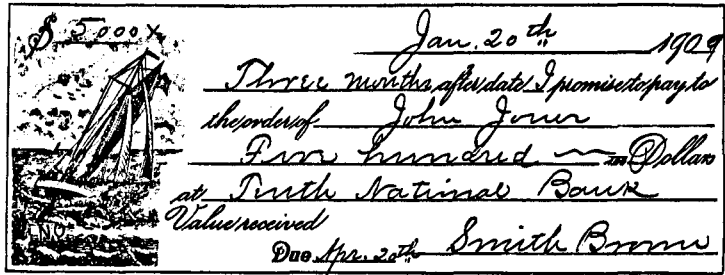 $ 5000 x
Jan. 20th 1909
Three months after date I promise to pay to
the order of John Jones
Five hundred Dollars
at Tenth National Bank
Value received
No.
Due Apr. 20th Smith Brown